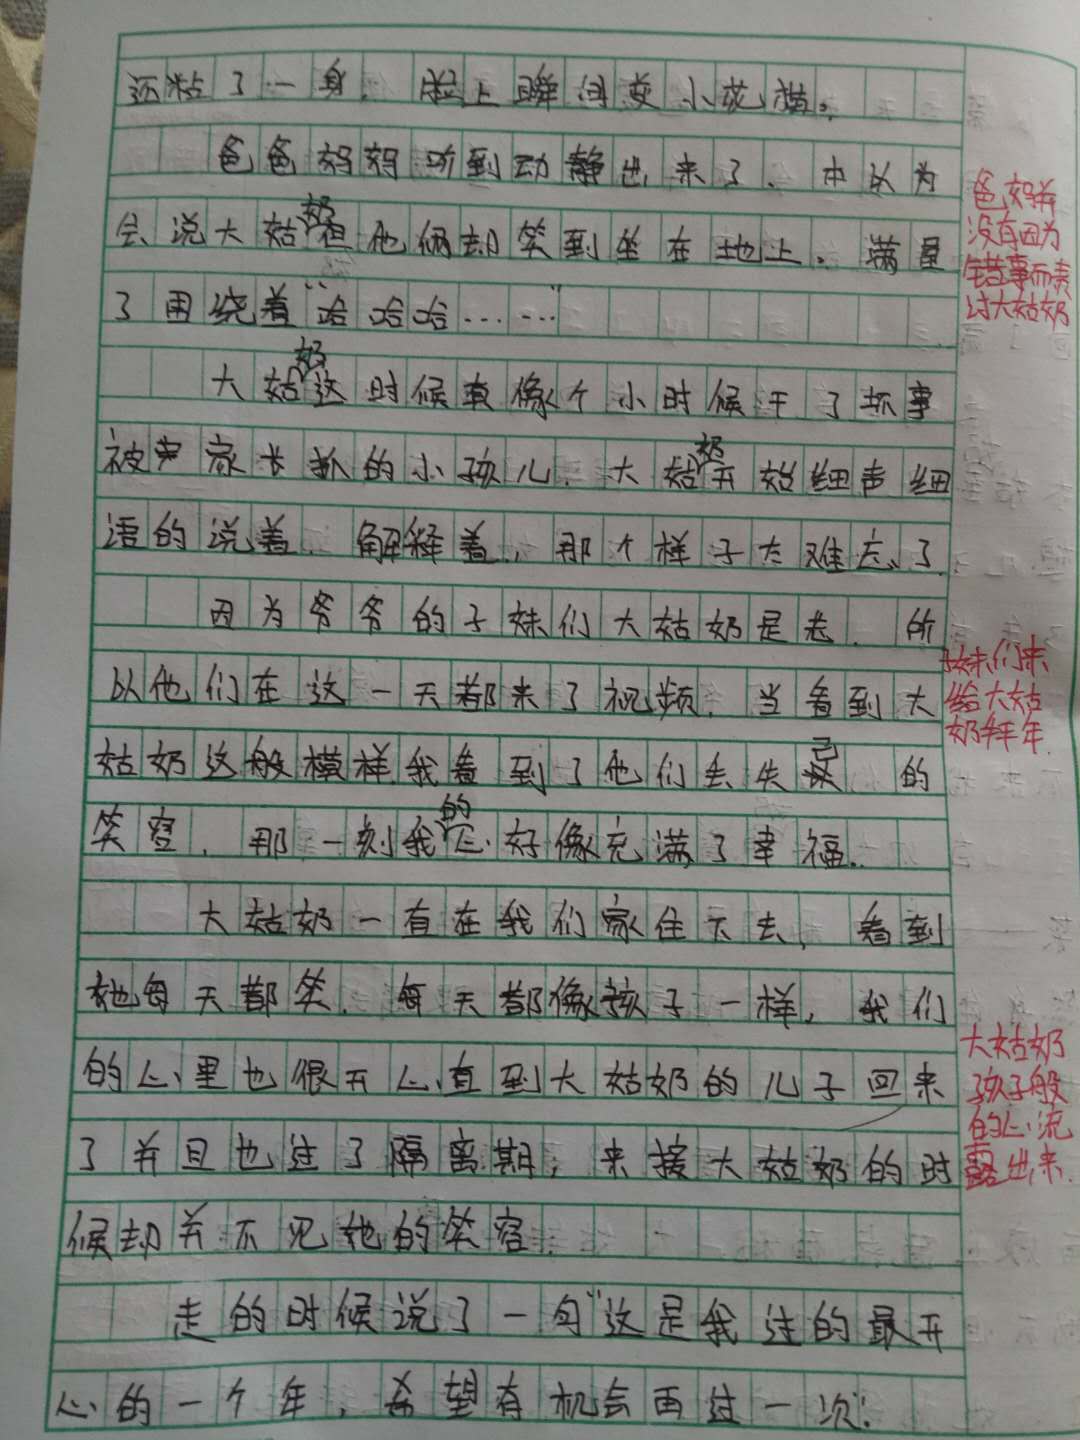 还粘了一身，脸上瞬间变小花猫。
爸爸妈妈听到动静出来了，本以为
会说大姑奶但他俩却笑到坐在地上。满屋
了围绕着“哈哈哈……”
大姑奶这时候真像个小时候干了坏事
被家长抓的小孩儿，大姑奶开始细声细
语的说着，解释着，那个样子太难忘了
因为爷爷的子妹们大姑奶是老，所
以他们在这一天都来了视频，当看到大
姑奶这般模样我看到了他们丢失已的
笑容，那一刻我的心好像充满了幸福。
大姑奶一直在我们家住下去，看到
她每天都笑，每天都像孩子一样，我们
的心里也很开心直到大姑奶的儿子回来
了并且也过了隔离期，来接大姑奶的时
候却并不见她的笑容，
走的时候说了一句“这是我过的最开
心的一个年，希望有机会再过一次”。
爸妈并
没有因为
错事而责
讨大姑奶
子妹们来
给大姑
奶拜年
大姑奶
孩子般
的心流
露出来